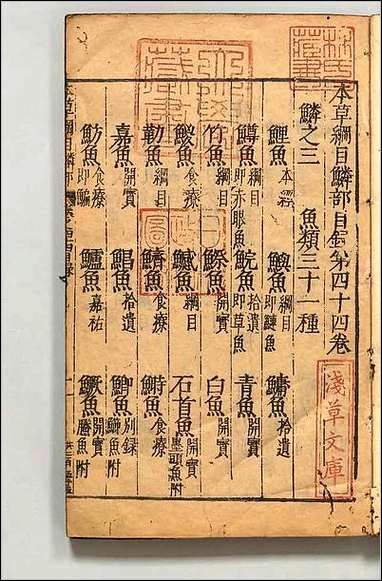 本草綱目鱗部目錄第四十四卷
鱗之三 魚類三十一種
鯉魚本經 鱮魚綱目即鰱魚 鱅魚拾遺
鱒魚綱目即赤眼魚 鯇魚拾遺即草魚 青魚開寶
竹魚綱目 鯔魚開寶 白魚開寶
鯼魚食療 鱤魚綱目 石首魚開寶墨頭魚附
勒魚綱目 鱭魚食療 鰣魚食療
嘉魚開寶 鯧魚拾遺 鯽魚別録鰤魚附
魴魚食療即鯿 鱸魚嘉祐 鱖魚開寶騰魚附
本草綱目鱗部
林氏藏書
淺草文庫